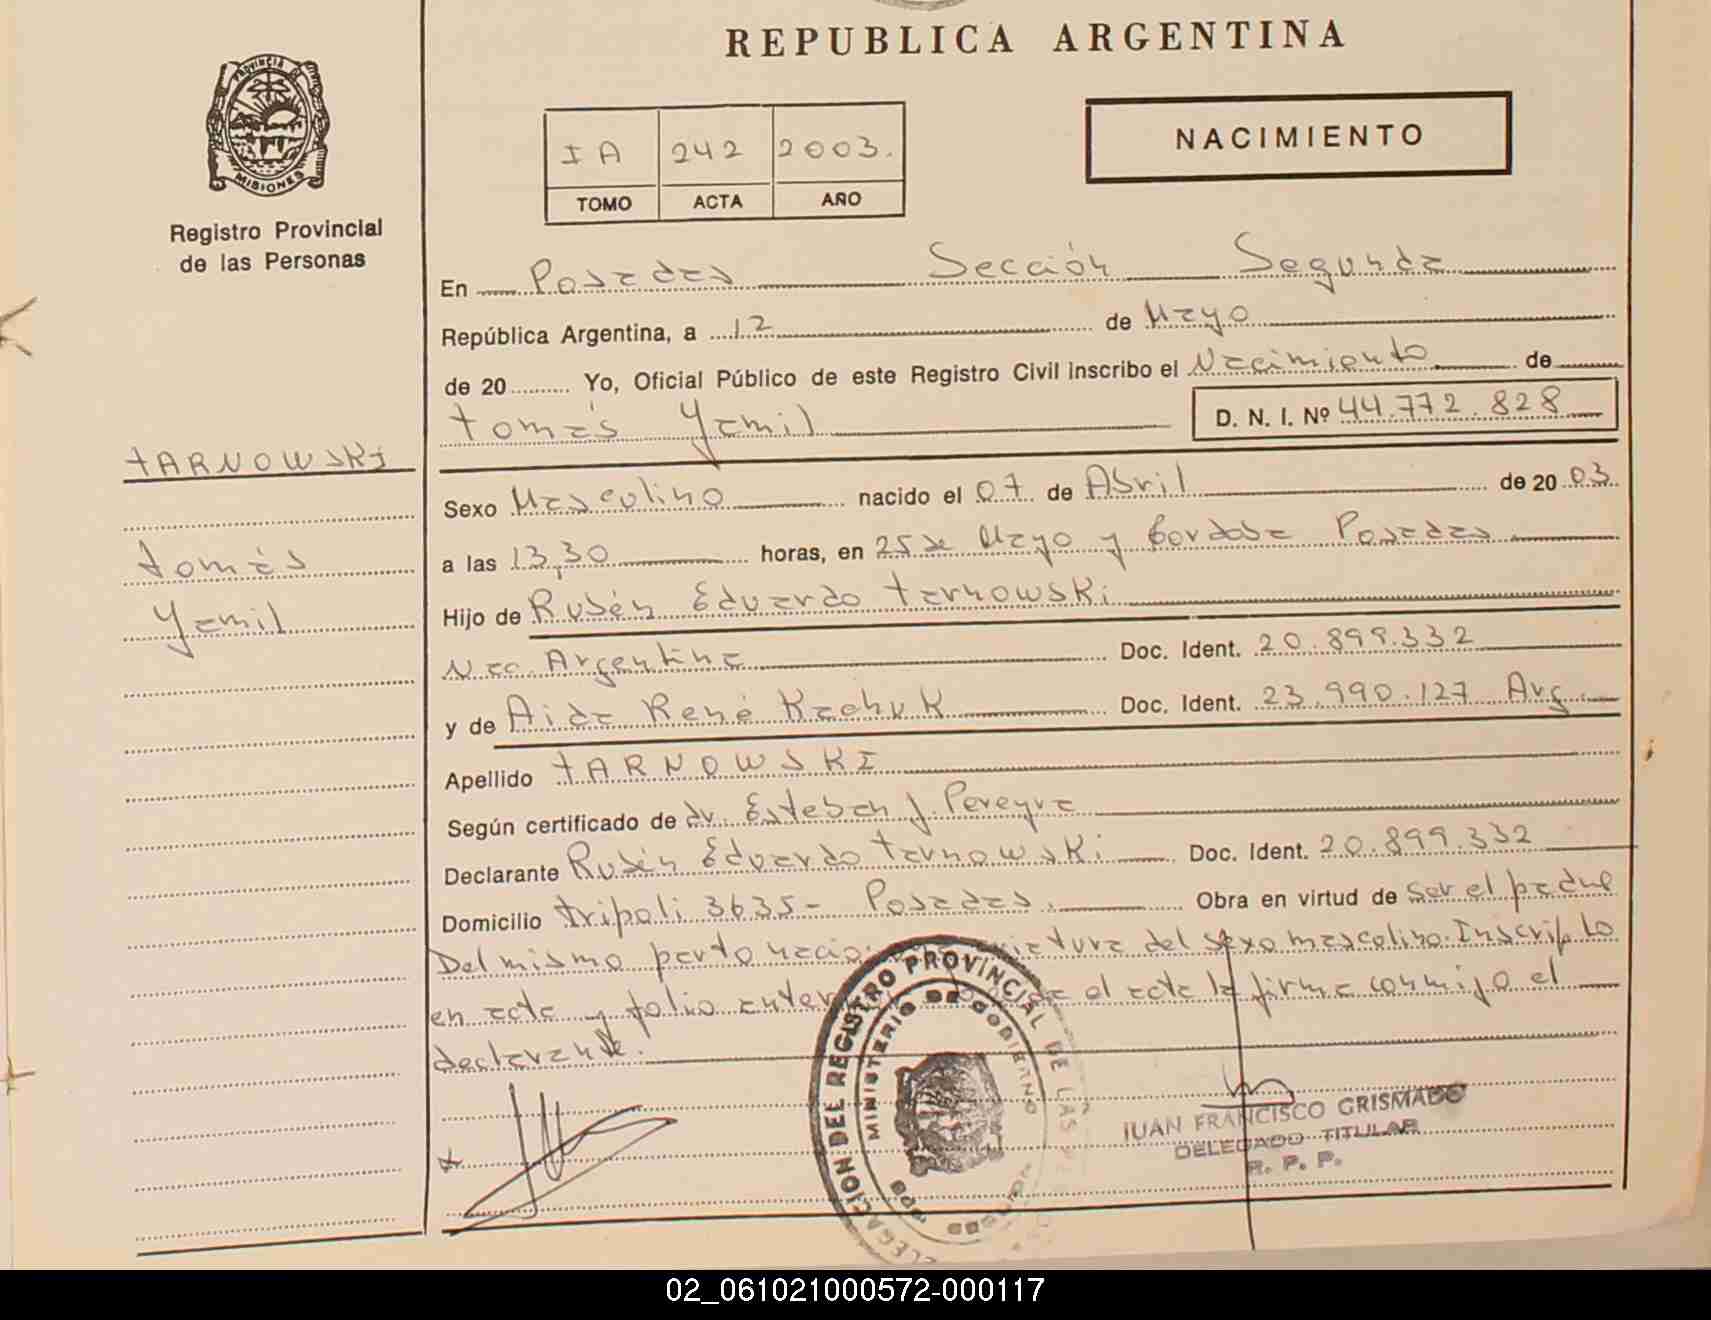 REPUBLICA ARGENTINA
PROVINCIA DE
MISIONES
Registro Provincial
de las Personas
NACIMIENTO
IA 242 2003.
TOMO ACTA AÑO
En Posadas Sección Segunda
República Argentina, a 12 de Mayo
de 20 Yo, Oficial Público de este Registro Civil inscribo el Nacimiento de
tomás Yamil D. N. I. Nº 44.772.828
tARNOWSKi
tomás
Yamil
Sexo Masculino nacido el 07 de Abril de 20 03
a las 13,30 horas, en 25 de Mayo y Cordoba Posadas
Hijo de Rubén Eduardo tarnowski
Nac. Argentina Doc. Ident. 20.899.332
y de Aida René Kachuk Doc. Ident. 23.990.127 Arg.
Apellido tARNOWSKI
Según certificado de dr. Esteban J. Pereyra
Declarante Rubén Eduardo tarnowski Doc. Ident. 20.899.332
Domicilio tripoli 3635 - Posadas. Obra en virtud de ser el padre
Del mismo parto nacio criatura del sexo mascolino. Inscripto
en acta y folio el acta la firma conmigo el
declarante.
DELEGACION DEL REGISTRO PROVINCIAL DE LAS
MINISTERIO DE GOBIERNO
JUAN FRANCISCO GRISMADO
DELEGADO TITULAR
R. P. P.
02_061021000572-000117